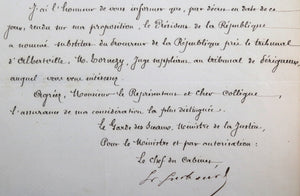 J'ai l'honneur de vous informer que, par décret en date de ce
jour, rendu sur ma proposition, le Président de la République
a nommé substitut du procureur de la République près le tribunal
d'Albertville, M. Juge suppléant au tribunal de Périgueux,
auquel vous vous intéressez.
Agréez, Monsieur le Représentant et cher Collègue,
l'assurance de ma considération la plus distinguée.
Le Garde des Sceaux, Ministre de la Justice,
Pour le Ministre et par autorisation :
Le Chef du Cabinet